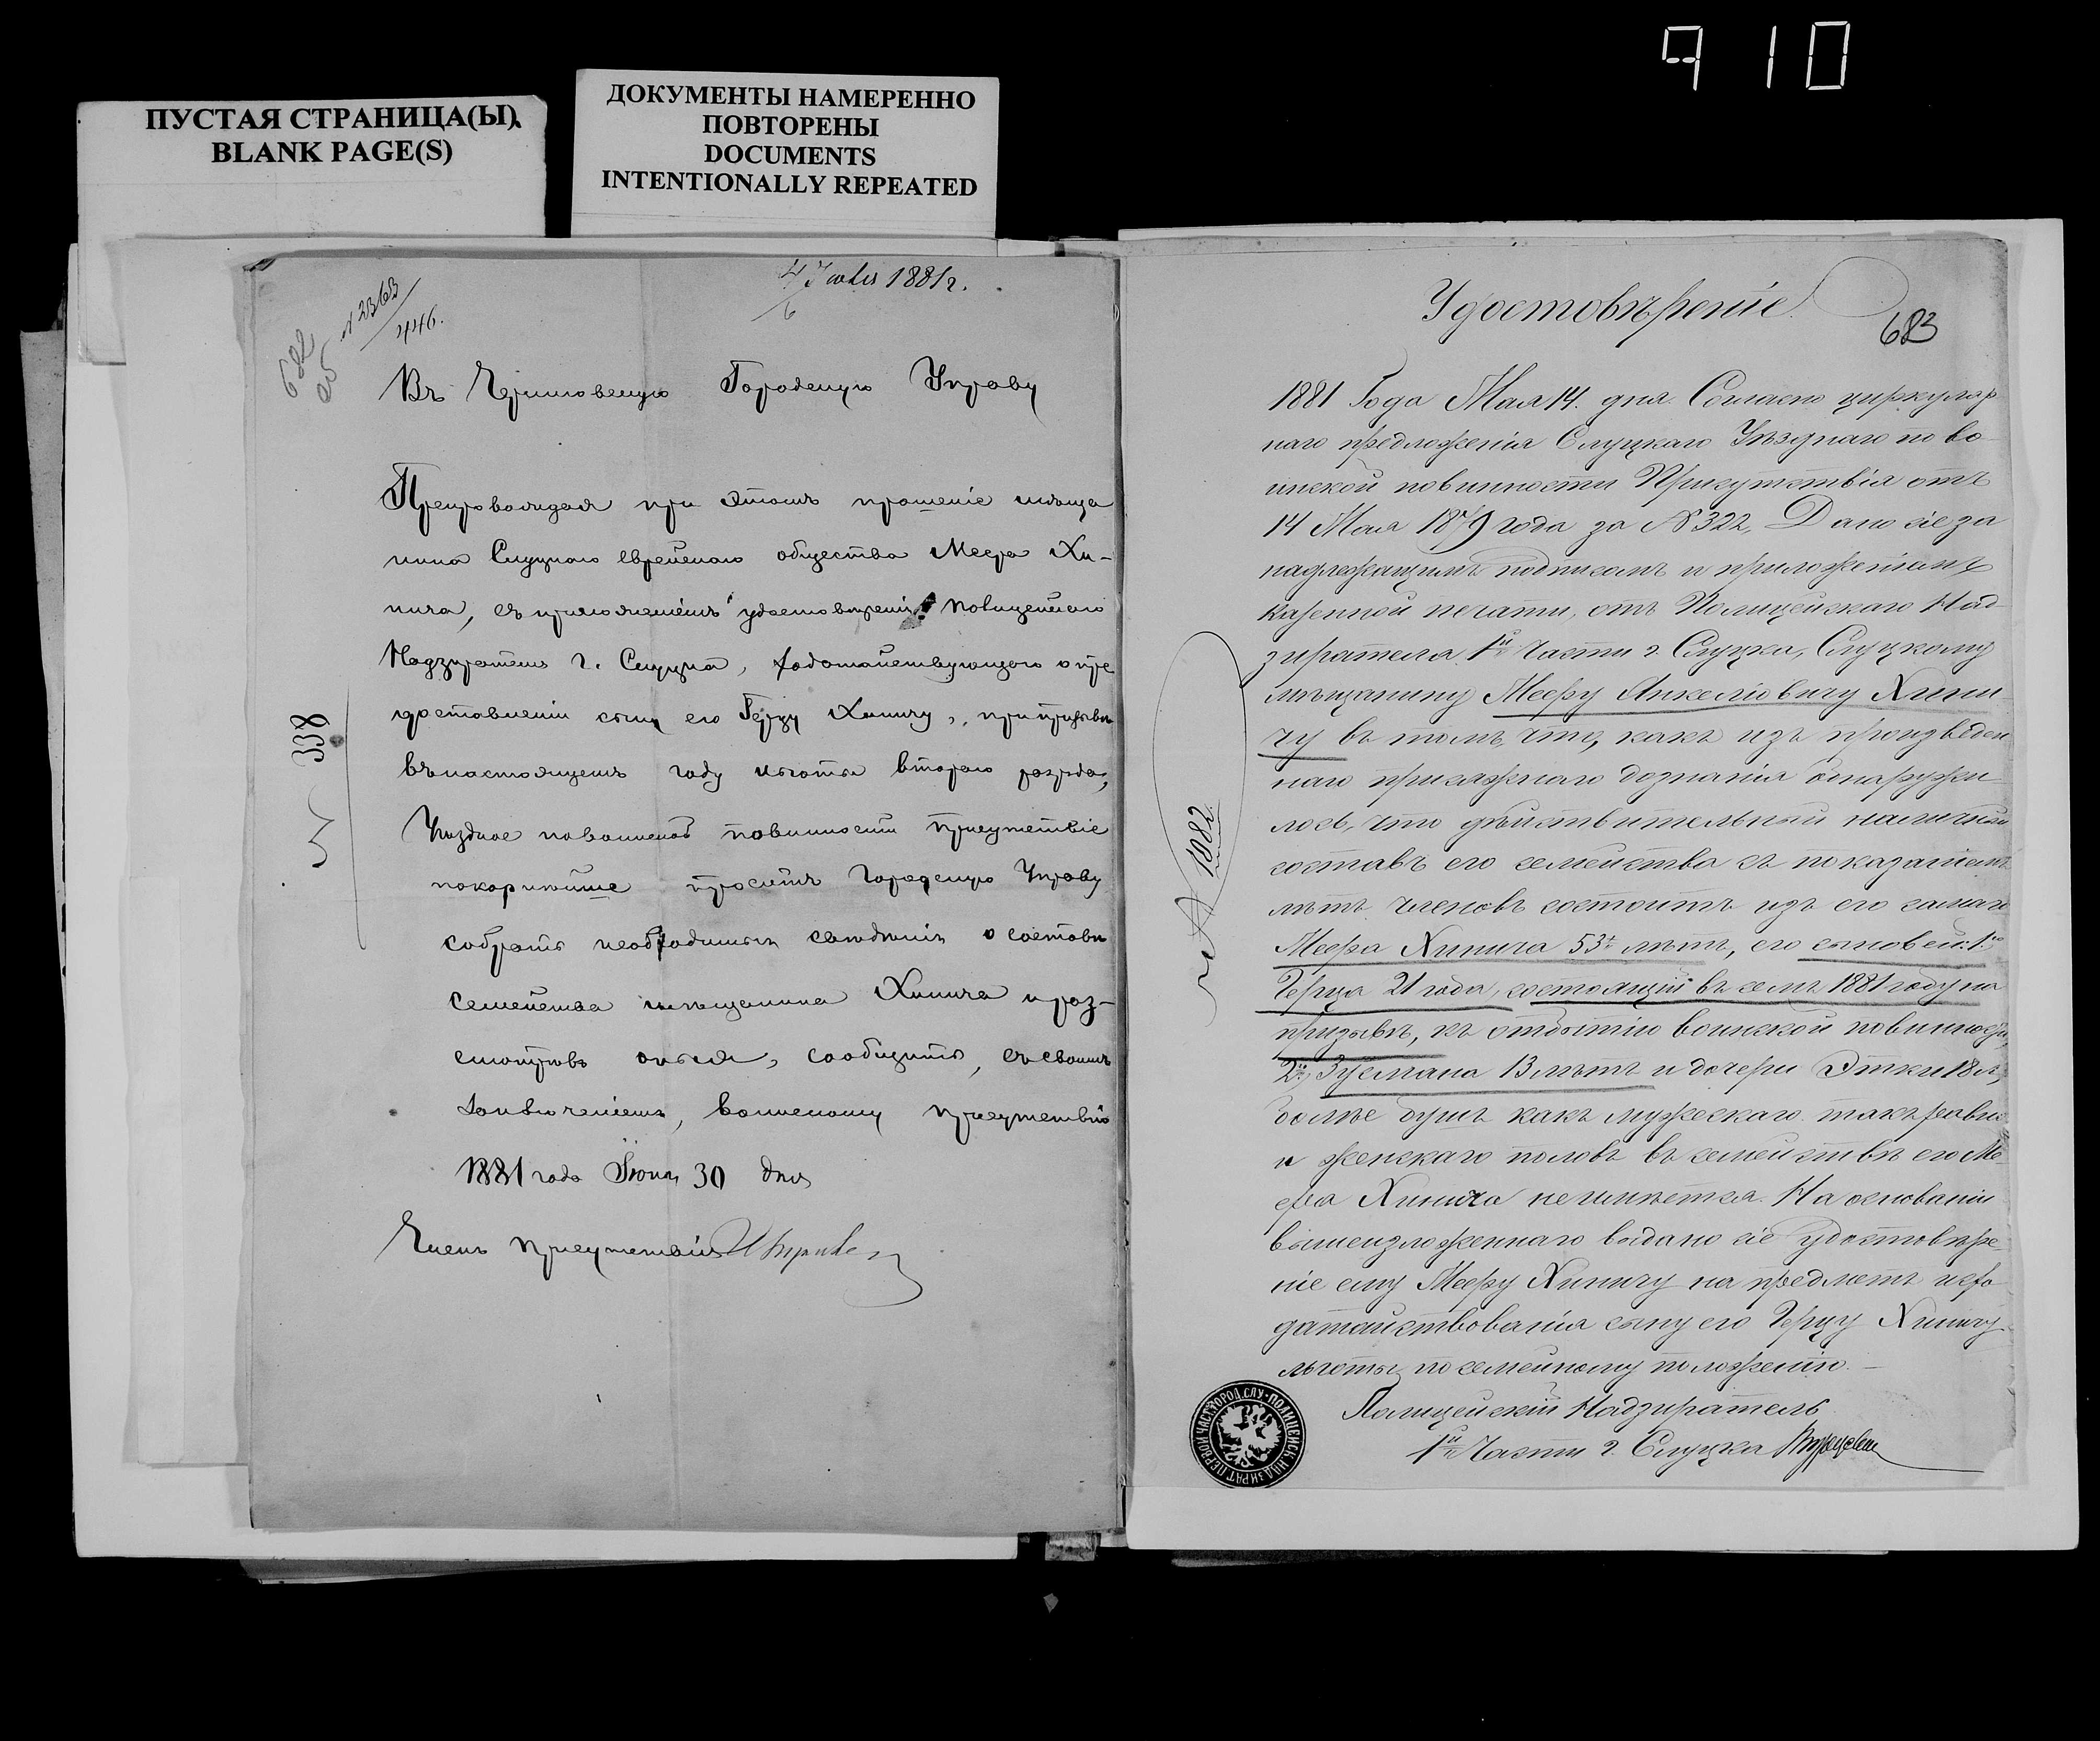 910
ПУСТАЯ СТРАНИЦА(Ы).
BLANK PAGE(S)
ДОКУМЕНТЫ НАМЕРЕННО
ПОВТОРЕНЫ
DOCUMENTS
INTENTIONALLY REPEATED
4 Іюля 1881 г.
6
N 2363
446.
682
об
Въ Городскую Управу
Препровождая при этомъ прошеніе мѣща
нина Слуцкаго еврейскаго общества Меера Хи-
нича, съ приложеніемъ удостовѣренія Полицейскаго
Надзирателя г. Слуцка, ходатайствующаго о пре
доставленіи сыну его Герцу Хиничу, при призывѣ
въ настоящемъ году льготы втораго разряда,
Уѣздное по воинской повинности Присутствіе
покорнѣйше проситъ Городскую Управу
собрать необходимыя свѣдѣнія о составѣ
семейства мѣщанина Хинича и раз-
смотрѣвъ оныя, сообщить, съ своимъ
заключеніемъ, воинскому Присутствію
1881 года Іюня 30 дня
Членъ Присутствія
338
Удостовѣреніе.
683
1881 Года Мая 14. дня. Согласно циркуляр
наго предложенія Слуцкаго Уѣзднаго по во-
инской повинности Присутствія отъ
14 Мая 1879 года за N 322, Дано сіе за
надлежащимъ подписомъ и приложеніемъ
казенной печати, отъ Полицейскаго Над-
зирателя 1й Части г. Слуцка, Слуцкому
мѣщанину Мееру Янкелювичу Хини-
чу въ томъ, что, какъ изъ произведен
наго присяжнаго дознанія обнаружи-
лось, что дѣйствительный наличный
составъ его семейства съ показаніемъ
лѣтъ членовъ состоитъ изъ его самаго
Меера Хинича 53х лѣтъ, его сыновей: 1го
Герца 21 года, состоящій въ семъ 1881 году на
призывѣ, къ отбытію воинской повинности,
2го Зусмана 13 лѣтъ и дочери Этки 18 л,
болѣе душъ какъ мужескаго такъ равно
и женскаго половъ въ семействѣ его Ме-
ера Хинича не имѣется. На основаніи
вышеизложеннаго выдано сіе удостовѣре-
ніе ему Мееру Хиничу на предметъ исхо-
датайствованія сыну его Герцу Хиничу
льготы по семейному положенію. —
Полицейскій Надзиратель
1й Части г. Слуцка
1882
ПОЛИЦЕЙСК. НАДЗИРАТ. ПЕРВОЙ ЧАСТ. ГОРОД. СЛУ-